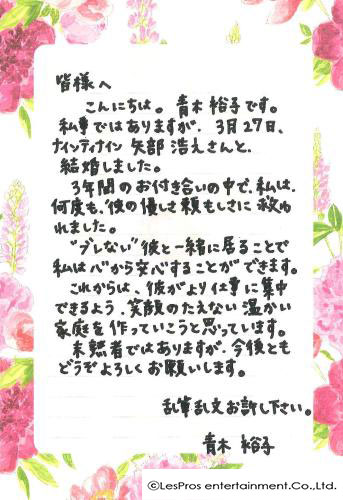 皆様へ
こんにちは。青木裕子です。
私事ではありますが、3月27日、
ナインティナイン 矢部 浩之さんと、
結婚しました。
3年間のお付き合いの中で、私は、
何度も、彼の優しさ、頼もしさに 救わ
れました。
"ブレない"彼と一緒に居ることで
私は心から安心することができます。
これからは、彼がより仕事に集中
できるよう、笑顔のたえない温かい
家庭を作っていこうと思っています。
未熟者ではありますが、今後とも
どうぞよろしくお願いします。
乱筆乱文お許し下さい。
青木 裕子
©LesPros entertainment.Co.,Ltd.